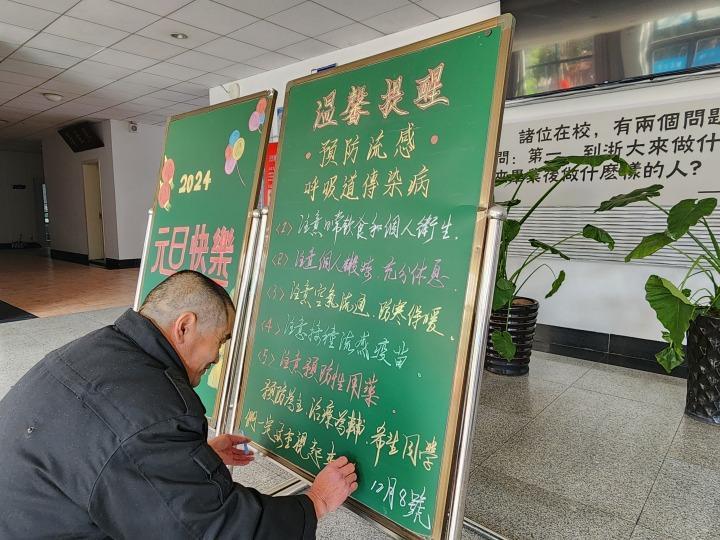 2024
元旦快樂
溫馨提醒
·預防流感·
呼吸道傳染病
(1)注意日常飲食和個人衛生.
(2)注意個人鍛煉,充分休息
(3)注意空氣流通、防寒保暖.
(4)注意接種流感疫苗.
(5)注意預防性用藥.
預防為主,治療為輔.希生同學
們一定要重視起來
12月8號
諸位在校，有兩個問題
問：第一，到浙大來做什
畢業後做什麽樣的人？